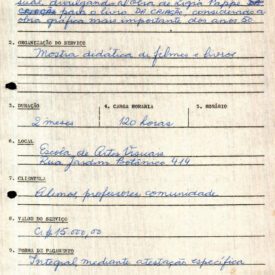 sual, divulgando a obra de Lygia Pappe
para o livro DA CRIAÇÃO, considerado a
obra gráfica mais importante dos anos 50
2. ORGANIZAÇÃO DO SERVIÇO
Mostra didática de filmes e livros
3. DURAÇÃO 4. CARGA HORÁRIA 5. HORÁRIO
2 meses 120 horas
6. LOCAL
Escola de Artes Visuais
Rua Jardim Botânico 414
7. CLIENTELA
Alunos, professores, comunidade
8. VALOR DO SERVIÇO
C.$ 15.000,00
9. FORMA DE PAGAMENTO
Integral mediante atestação específica